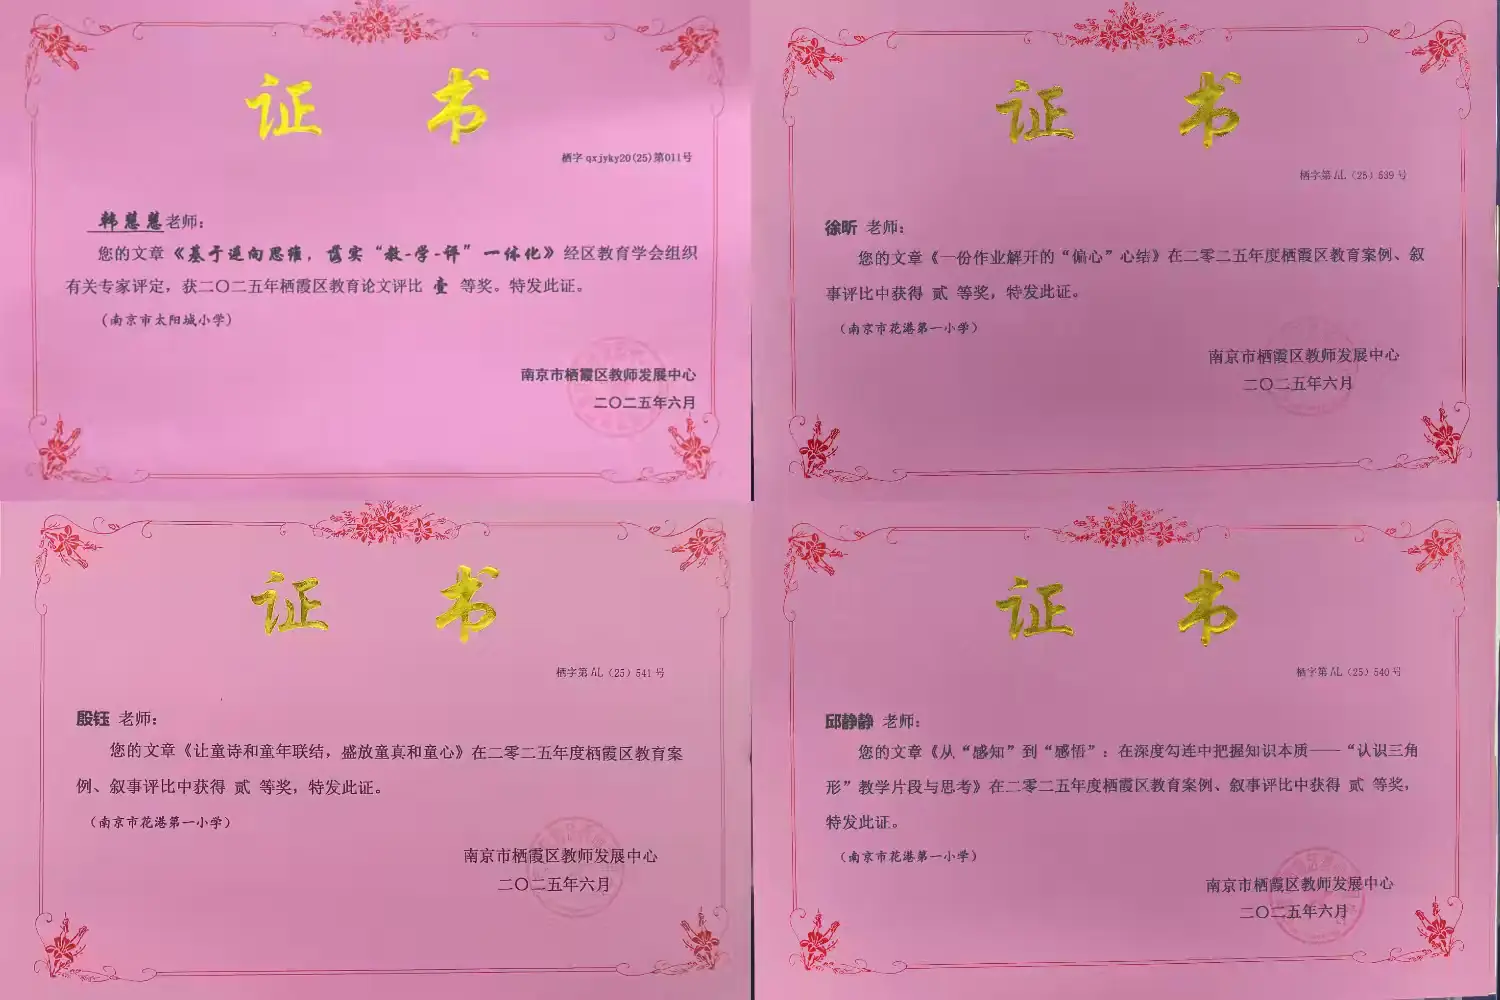 证 书
栖字 qxjyky20(25)第011号
韩慧慧老师：
您的文章《基于逆向思维，落实“教-学-评”一体化》经区教育学会组织
有关专家评定，获二〇二五年栖霞区教育论文评比 壹 等奖。特发此证。
（南京市太阳城小学）
南京市栖霞区教师发展中心
二〇二五年六月
证 书
栖字第AL（25）539号
徐昕 老师：
您的文章《一份作业解开的“偏心”心结》在二零二五年度栖霞区教育案例、叙
事评比中获得 贰 等奖，特发此证。
（南京市花港第一小学）
南京市栖霞区教师发展中心
二〇二五年六月
证 书
栖字第AL（25）541号
殷钰 老师：
您的文章《让童诗和童年联结，盛放童真和童心》在二零二五年度栖霞区教育案
例、叙事评比中获得 贰 等奖，特发此证。
（南京市花港第一小学）
南京市栖霞区教师发展中心
二〇二五年六月
证 书
栖字第AL（25）540号
邱静静 老师：
您的文章《从“感知”到“感悟”：在深度勾连中把握知识本质——“认识三角
形”教学片段与思考》在二零二五年度栖霞区教育案例、叙事评比中获得 贰 等奖，
特发此证。
（南京市花港第一小学）
南京市栖霞区教师发展中心
二〇二五年六月